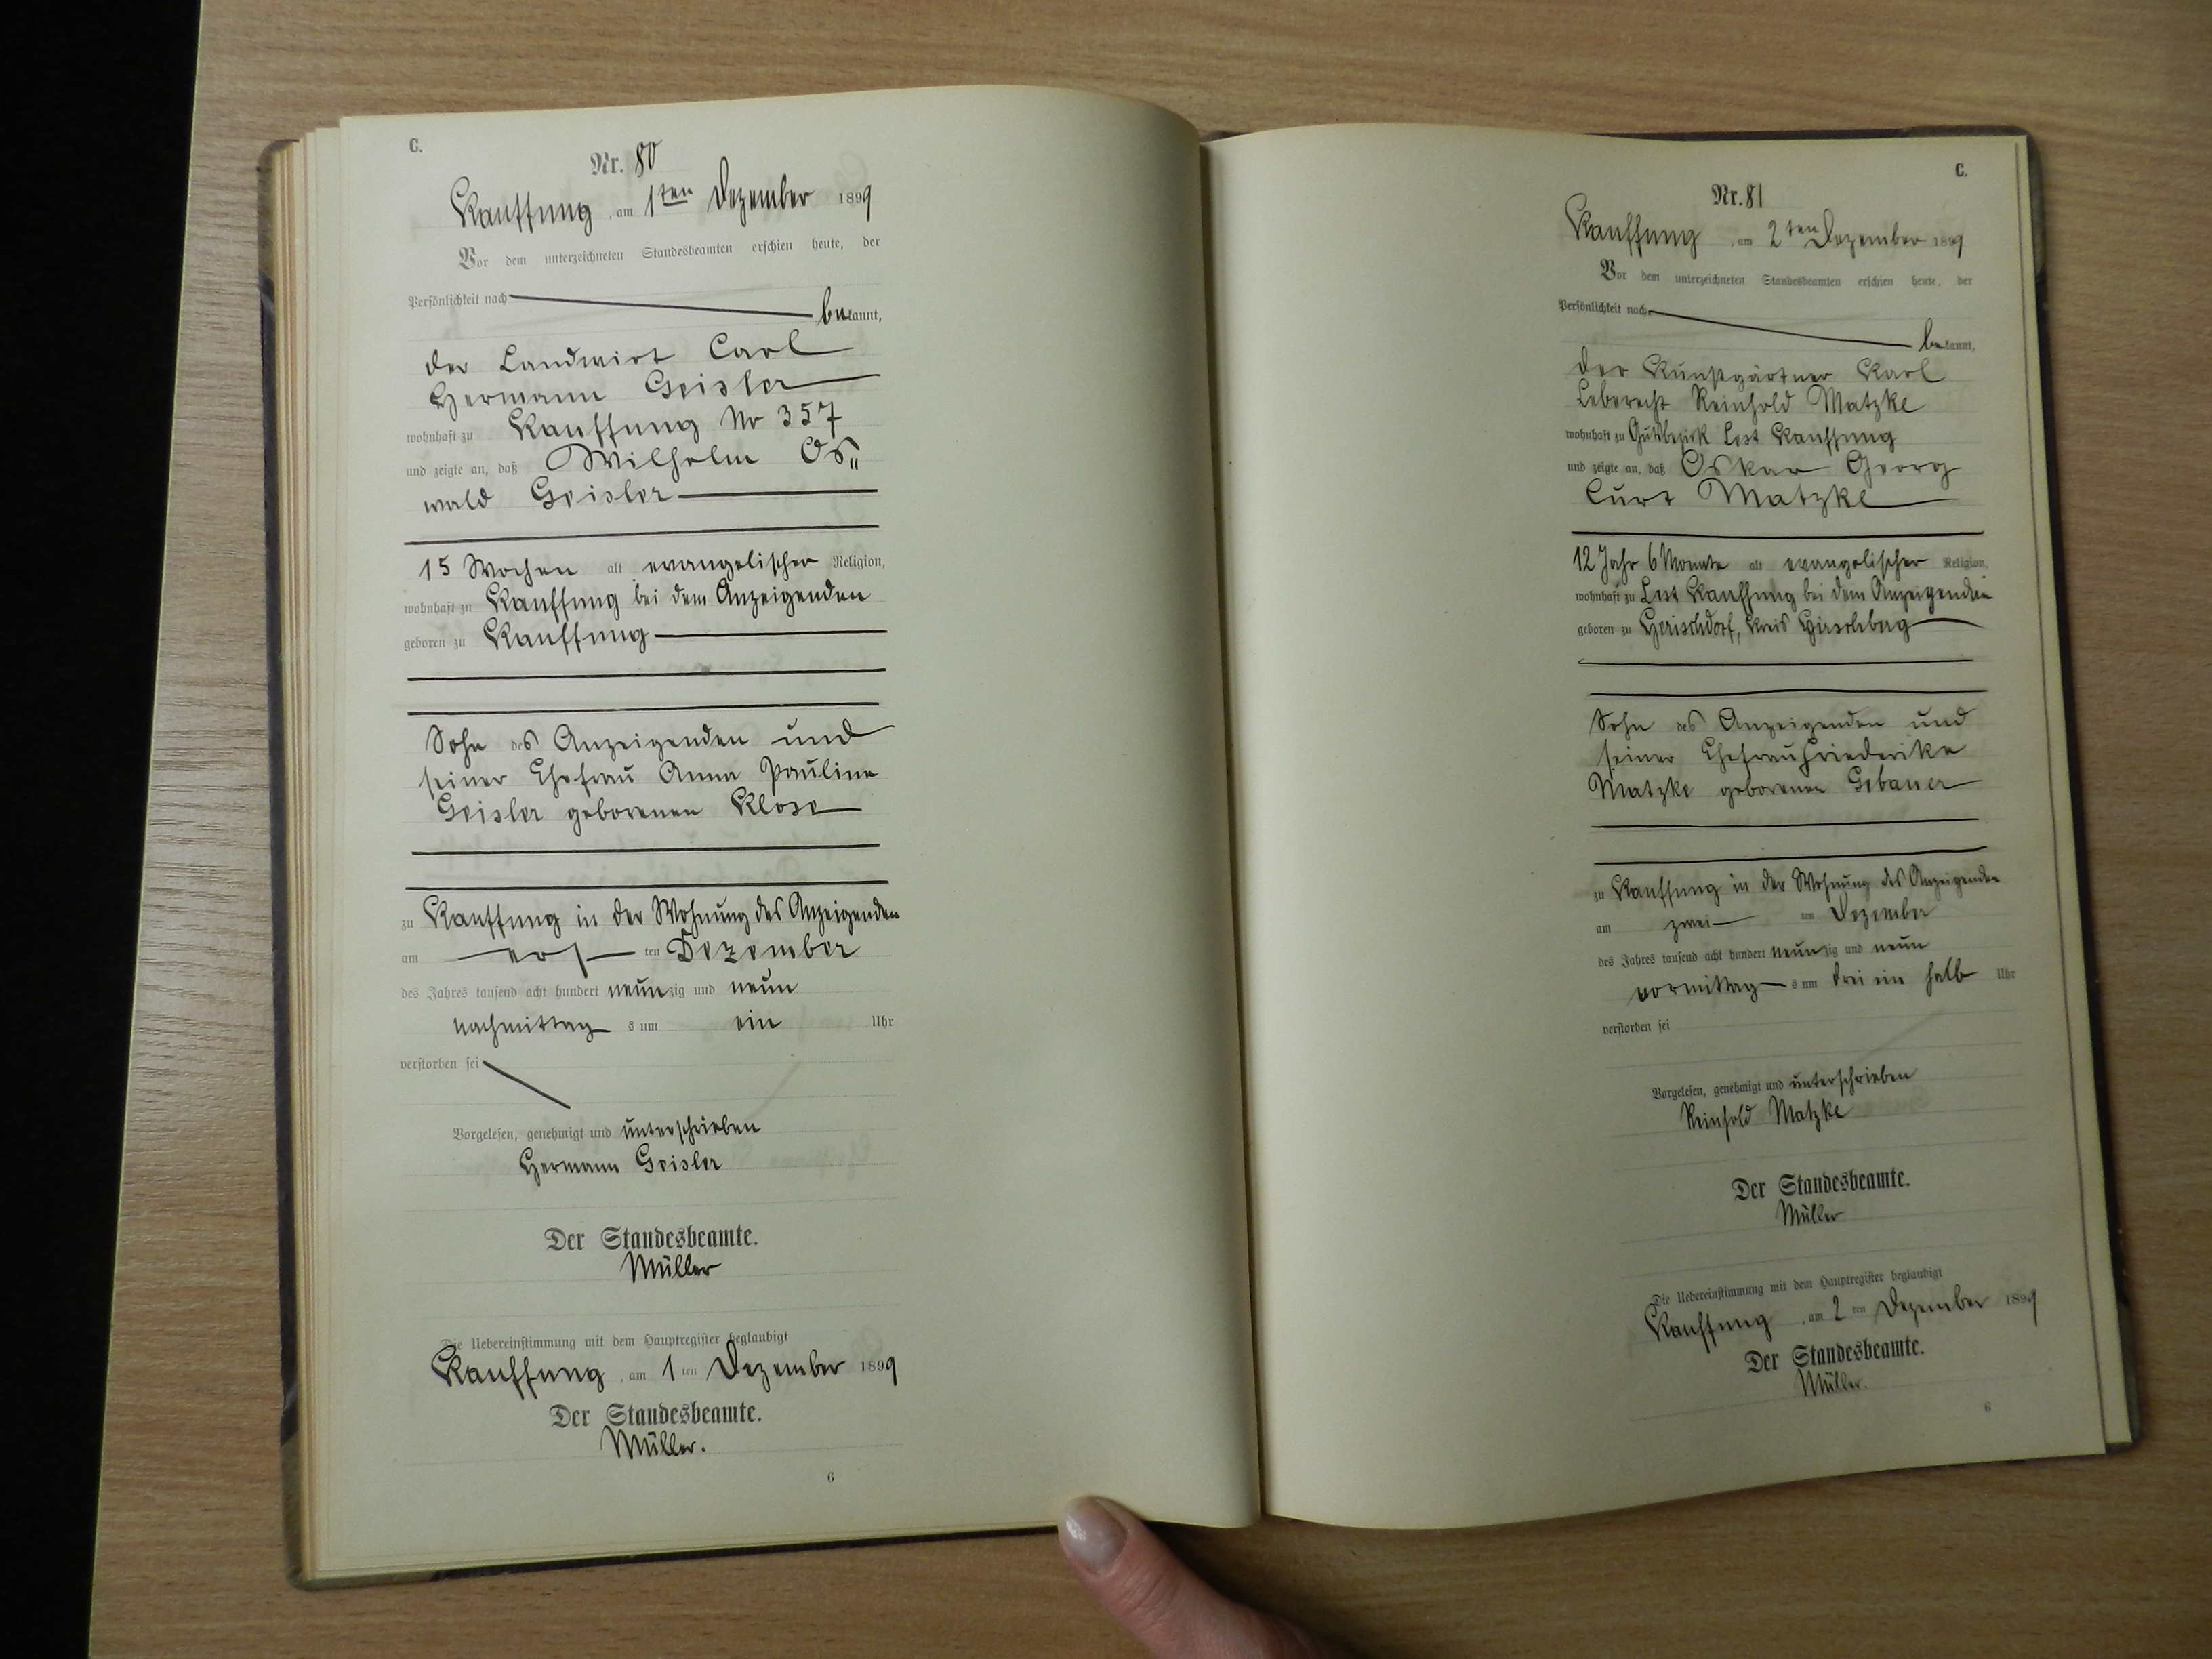 C.
Nr. 80
Kauffung, am 1ten Dezember 1899
Vor dem unterzeichneten Standesbeamten erschien heute, der
Persönlichkeit nach
bekannt,
der Landwirt Carl
Hermann Geisler
wohnhaft zu Kauffung No 357
und zeigte an, daß Wilhelm Os„
wald Geisler
15 Wochen alt evangelischer Religion,
wohnhaft zu Kauffung bei dem Anzeigenden
geboren zu Kauffung
Sohn des Anzeigenden und
seiner Ehefrau Anna Pauline
Geisler geborenen Klose
zu Kauffung in der Wohnung des Anzeigenden
am erst ten Dezember
des Jahres tausend acht hundert neunzig und neun
nachmittag s um ein Uhr
verstorben sei
Vorgelesen, genehmigt und unterschrieben
Hermann Geisler
Der Standesbeamte.
Müller
Die Uebereinstimmung mit dem Hauptregister beglaubigt
Kauffung, am 1 ten Dezember 1899
Der Standesbeamte.
Müller.
6
C.
Nr. 81
Kauffung, am 2ten Dezember 1899
Vor dem unterzeichneten Standesbeamten erschien heute, der
Persönlichkeit nach
bekannt,
der Kunstgärtner Karl
Leberecht Reinhold Matzke
wohnhaft zu Gutsbezirk Lest Kauffung
und zeigte an, daß Oskar Georg
Curt Matzke
12 Jahr 6 Monate alt evangelischer Religion,
wohnhaft zu Lest Kauffung bei dem Anzeigenden
geboren zu Herischdorf, Kreis Hirschberg
Sohn des Anzeigenden und
seiner Ehefrau Friederike
Matzke geborenen Gebauer
zu Kauffung in der Wohnung des Anzeigenden
am zwei ten Dezember
des Jahres tausend acht hundert neunzig und neun
vormittag s um drei ein halb Uhr
verstorben sei
Vorgelesen, genehmigt und unterschrieben
Reinhold Matzke
Der Standesbeamte.
Müller
Die Uebereinstimmung mit dem Hauptregister beglaubigt
Kauffung, am 2 ten Dezember 1899
Der Standesbeamte.
Müller.
6